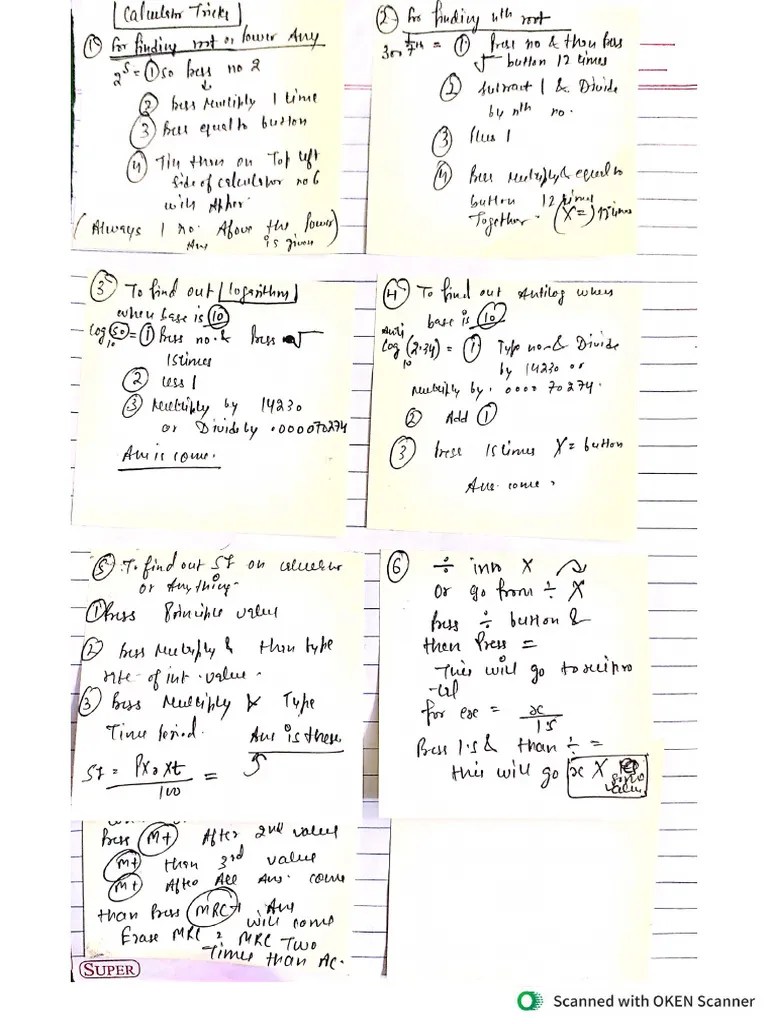 Calculator Tricks
① For finding root or power Any
2⁵ = ① so Press no 2
② Press Multiply 1 time
③ Press equal to button
④ on Top left
side of calculator no 6
with
(Always 1 no. Above the Power)
Ans is given
② For finding nth root
① Press no & than Press
√ button 12 times
② Subtract 1 & Divide
by nth no.
③ Plus 1
④ Press Multiply & equal to
button 12 times
Together. (X =) 12 times
③ To find out Logarithm
when base is 10
log₁₀(50) = ① Press no. & Press √
15 times
② Less 1
③ Multiply by 14230
or Divide by .000070274
Ans is come.
④ To find out Antilog when
base is 10
Anti log₁₀ (2.34) = ① Type no. & Divide
by 14230 or
Multiply by .000070274.
② Add ①
③ Press 15 times X = button
Ans. come.
⑤ To find out SI on calculator
or Anything
① Press Principle value
② Press Multiply & than type
rate of int. value.
③ Press Multiply & Type
Time period. Ans is there
SI = PXrXt =
100
⑥ ÷ into X
Or go from ÷ X
Press ÷ button &
then Press =
This will go to recipro
-cal
for ex = x
1.5
Press 1.5 & than ÷ =
this will go x X
value
Press M+ After 2nd value
M+ then 3rd value
M+ After All Ans. come
than Press MRC Ans
will come
Erase MRC = MRC Two
Times than AC.
SUPER
Scanned with OKEN Scanner